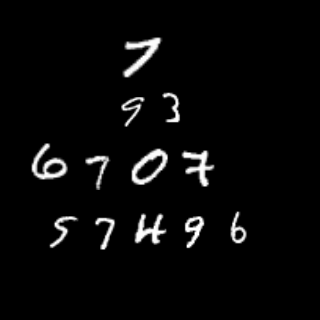 7
93
6707
57496